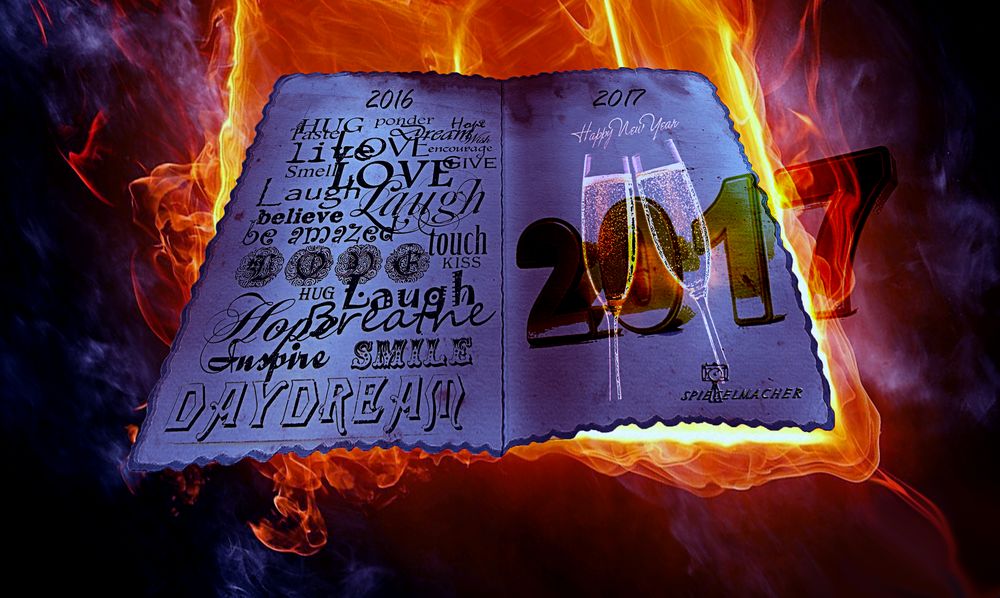 2016
HUG ponder Hope
taste Dream Wish
live LOVE encourage
Smell LOVE GIVE
Laugh Laugh
believe
be amazed touch
LOVE KISS
HUG Laugh
Hope Breathe
Inspire SMILE
DAYDREAM
2017
Happy New Year
2017
SPIEGELMACHER